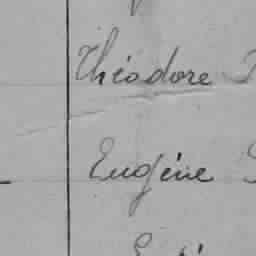 Théodore
Eugène